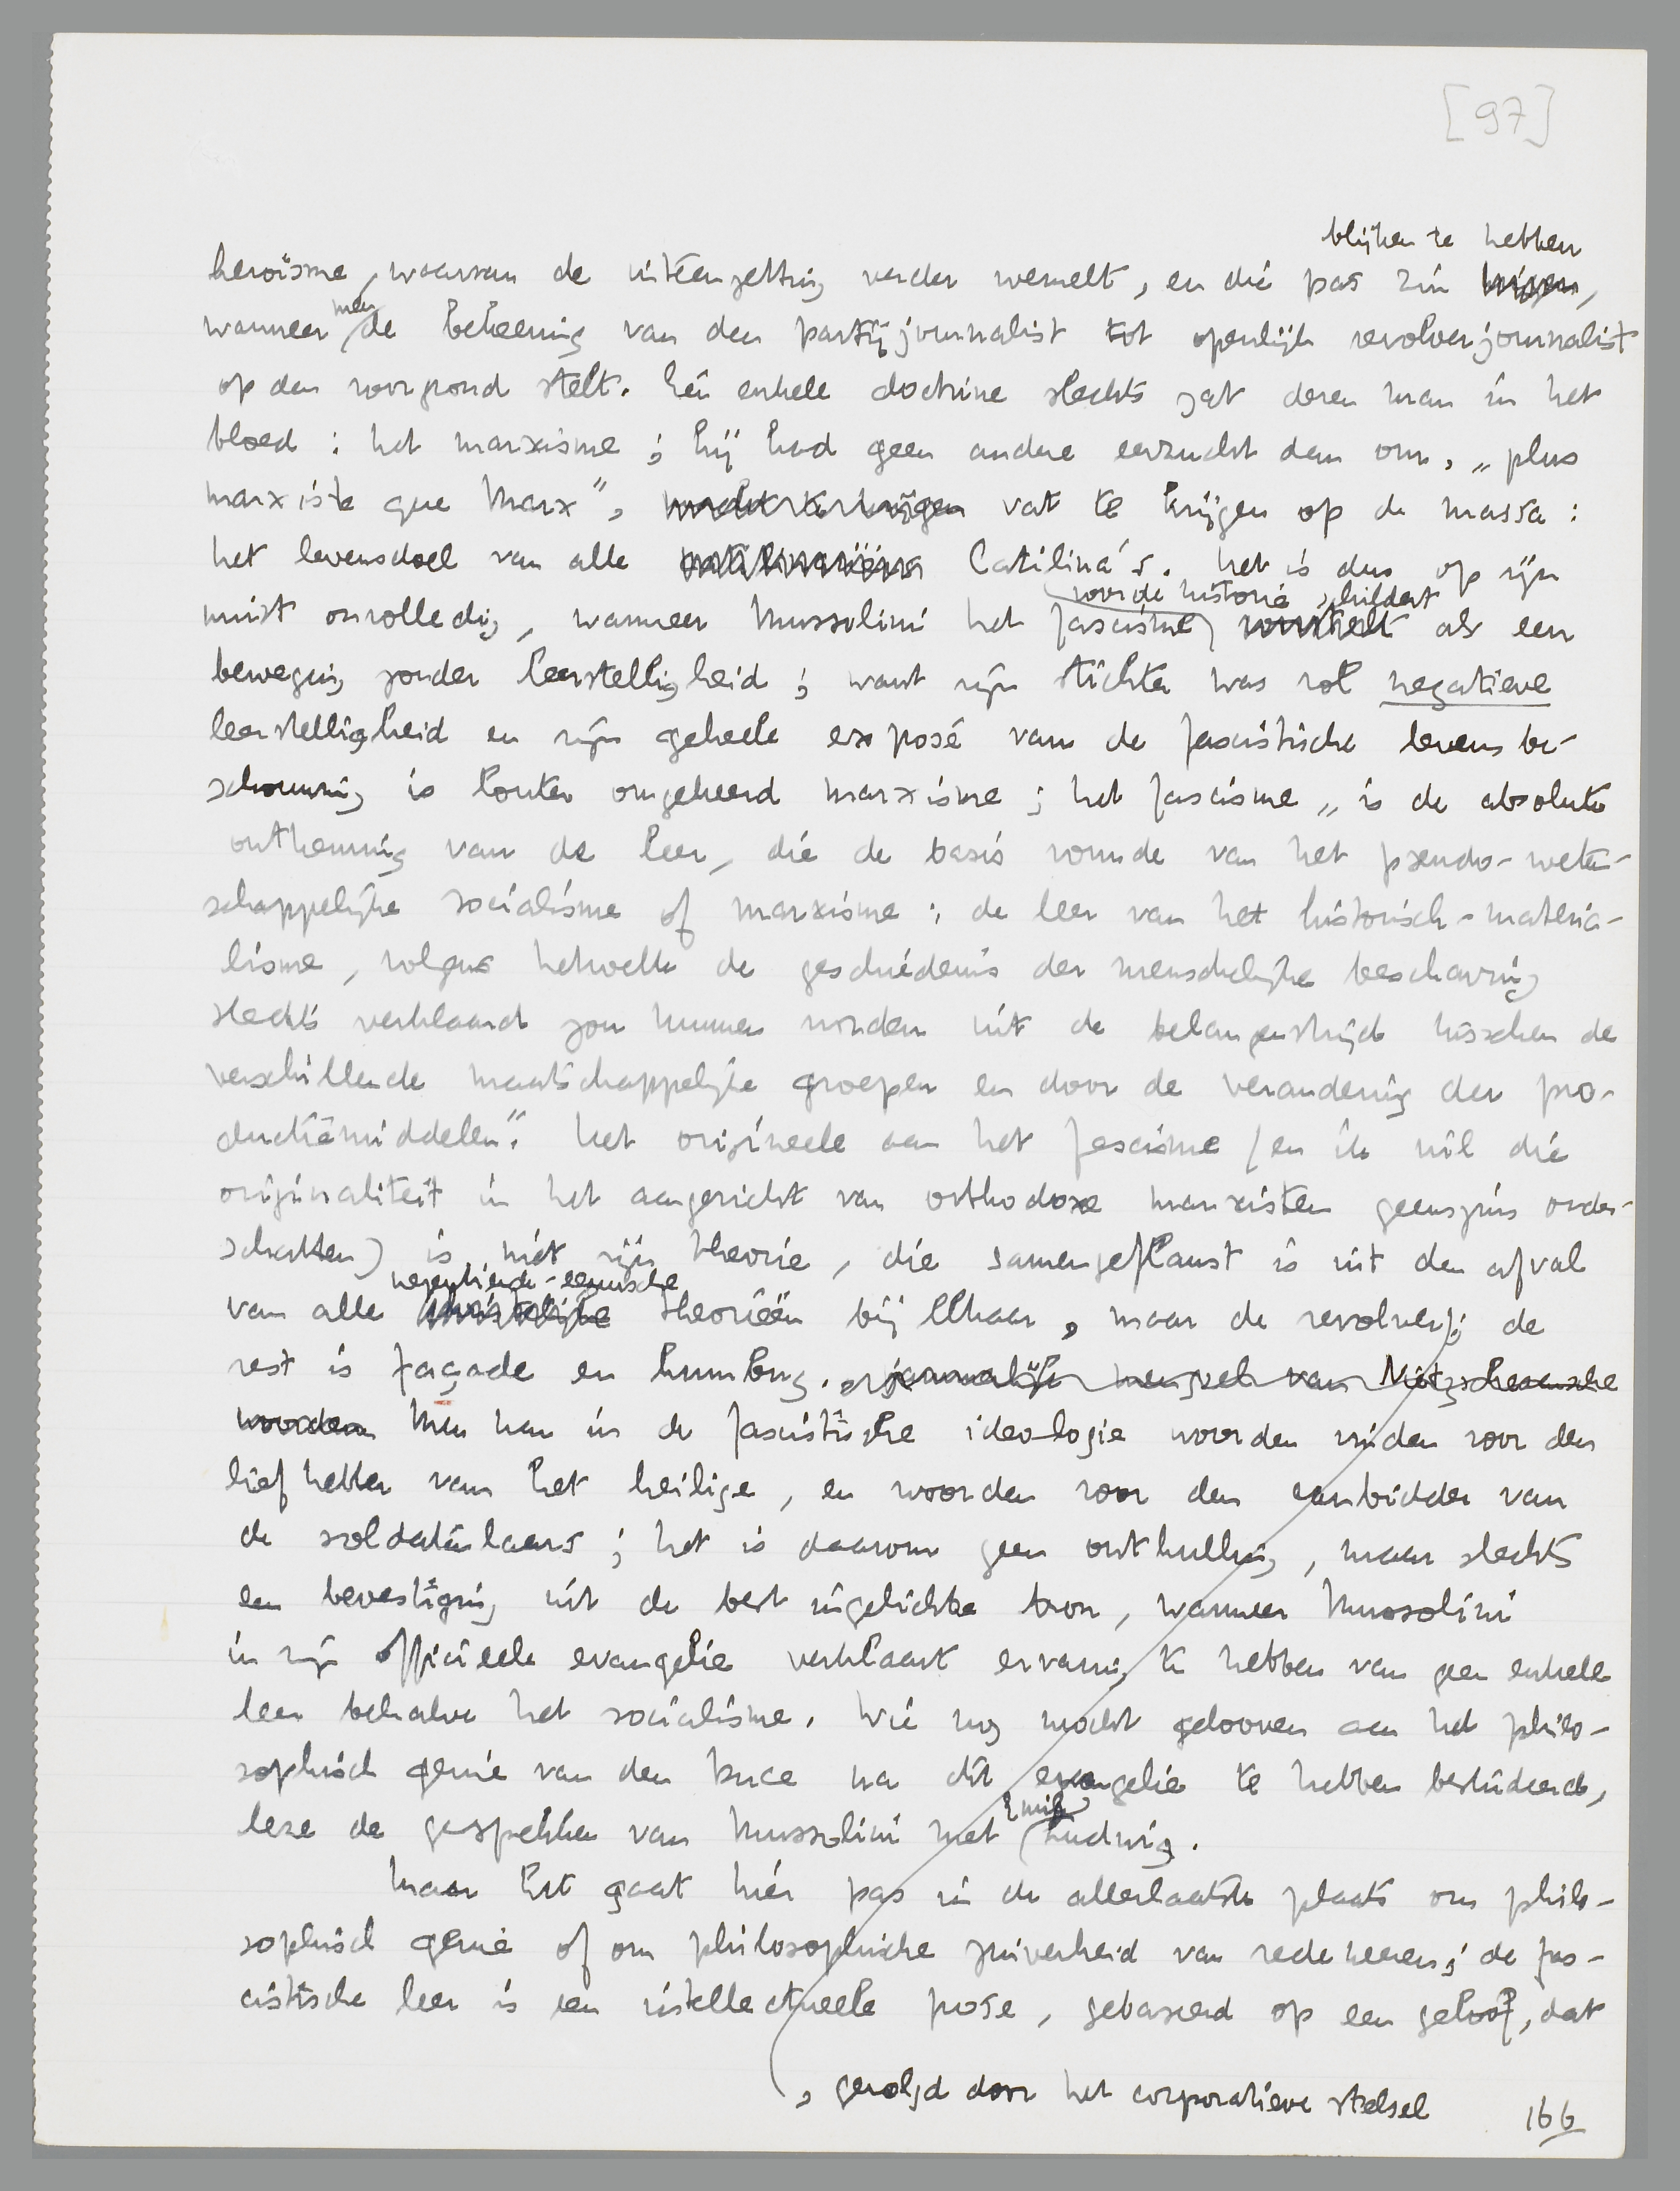 [97]
blijken te hebben
heroïsme, waarvan de uiteenzetting verder wemelt, en die pas zin krijgen,
wanneer men de bekeering van den partijjournalist tot openlijk revolverjournalist
op den voorgrond stelt. Eén enkele doctrine slechts zat dezen man in het
bloed : het marxisme ; hij had geen andere eerzucht dan om, „plus
marxiste que Marx”, macht te krijgen vat te krijgen op de massa :
het levensdoel van alle Catilina's. Het is dus op zijn
voor de historie schildert
minst onvolledig, wanneer Mussolini het fascisme voorstelt als een
beweging zonder leerstelligheid ; want zijn stichter was vol negatieve
leerstelligheid en zijn geheele exposé van de fascistische levensbe-
schouwing is louter omgekeerd marxisme ; het fascisme „is de absolute
ontkenning van de leer, die de basis vormde van het pseudo-weten-
schappelijke socialisme of marxisme : de leer van het historisch-materia-
lisme, volgens hetwelk de geschiedenis der menschelijke beschaving
slechts verklaard zou kunnen worden uit de belangenstrijd tusschen de
verschillende maatschappelijke groepen en door de verandering der pro-
ductiemiddelen”. Het origineele aan het fascisme (en ik wil die
originaliteit in het aangezicht van orthodoxe marxisten geenszins onder-
schatten) is niet zijn theorie, die samengeflanst is uit den afval
negentiende-eeuwsche
van alle christelijke theorieën bij elkaar, maar de revolver ; de
rest is façade en humbug. mengsel van Nietzscheaansche
woorden Men kan in de fascistische ideologie woorden vinden voor den
liefhebber van het heilige, en woorden voor den aanbidder van
de soldatenlaars ; het is daarom geen onthulling, maar slechts
een bevestiging uit de best ingelichte bron, wanneer Mussolini
in zijn officieele evangelie verklaart ervaring te hebben van geen enkele
leer behalve het socialisme. Wie nog mocht gelooven aan het philo-
sophisch genie van den Duce na dit evangelie te hebben bestudeerd,
Emil
leze de gesprekken van Mussolini met Ludwig.
Maar het gaat hier pas in de allerlaatste plaats om philo-
sophisch genie of om philosophische zuiverheid van redeneeren ; de fas-
cistische leer is een intellectueele pose, gebaseerd op een geloof, dat
, gevolgd door het corporatieve stelsel
166